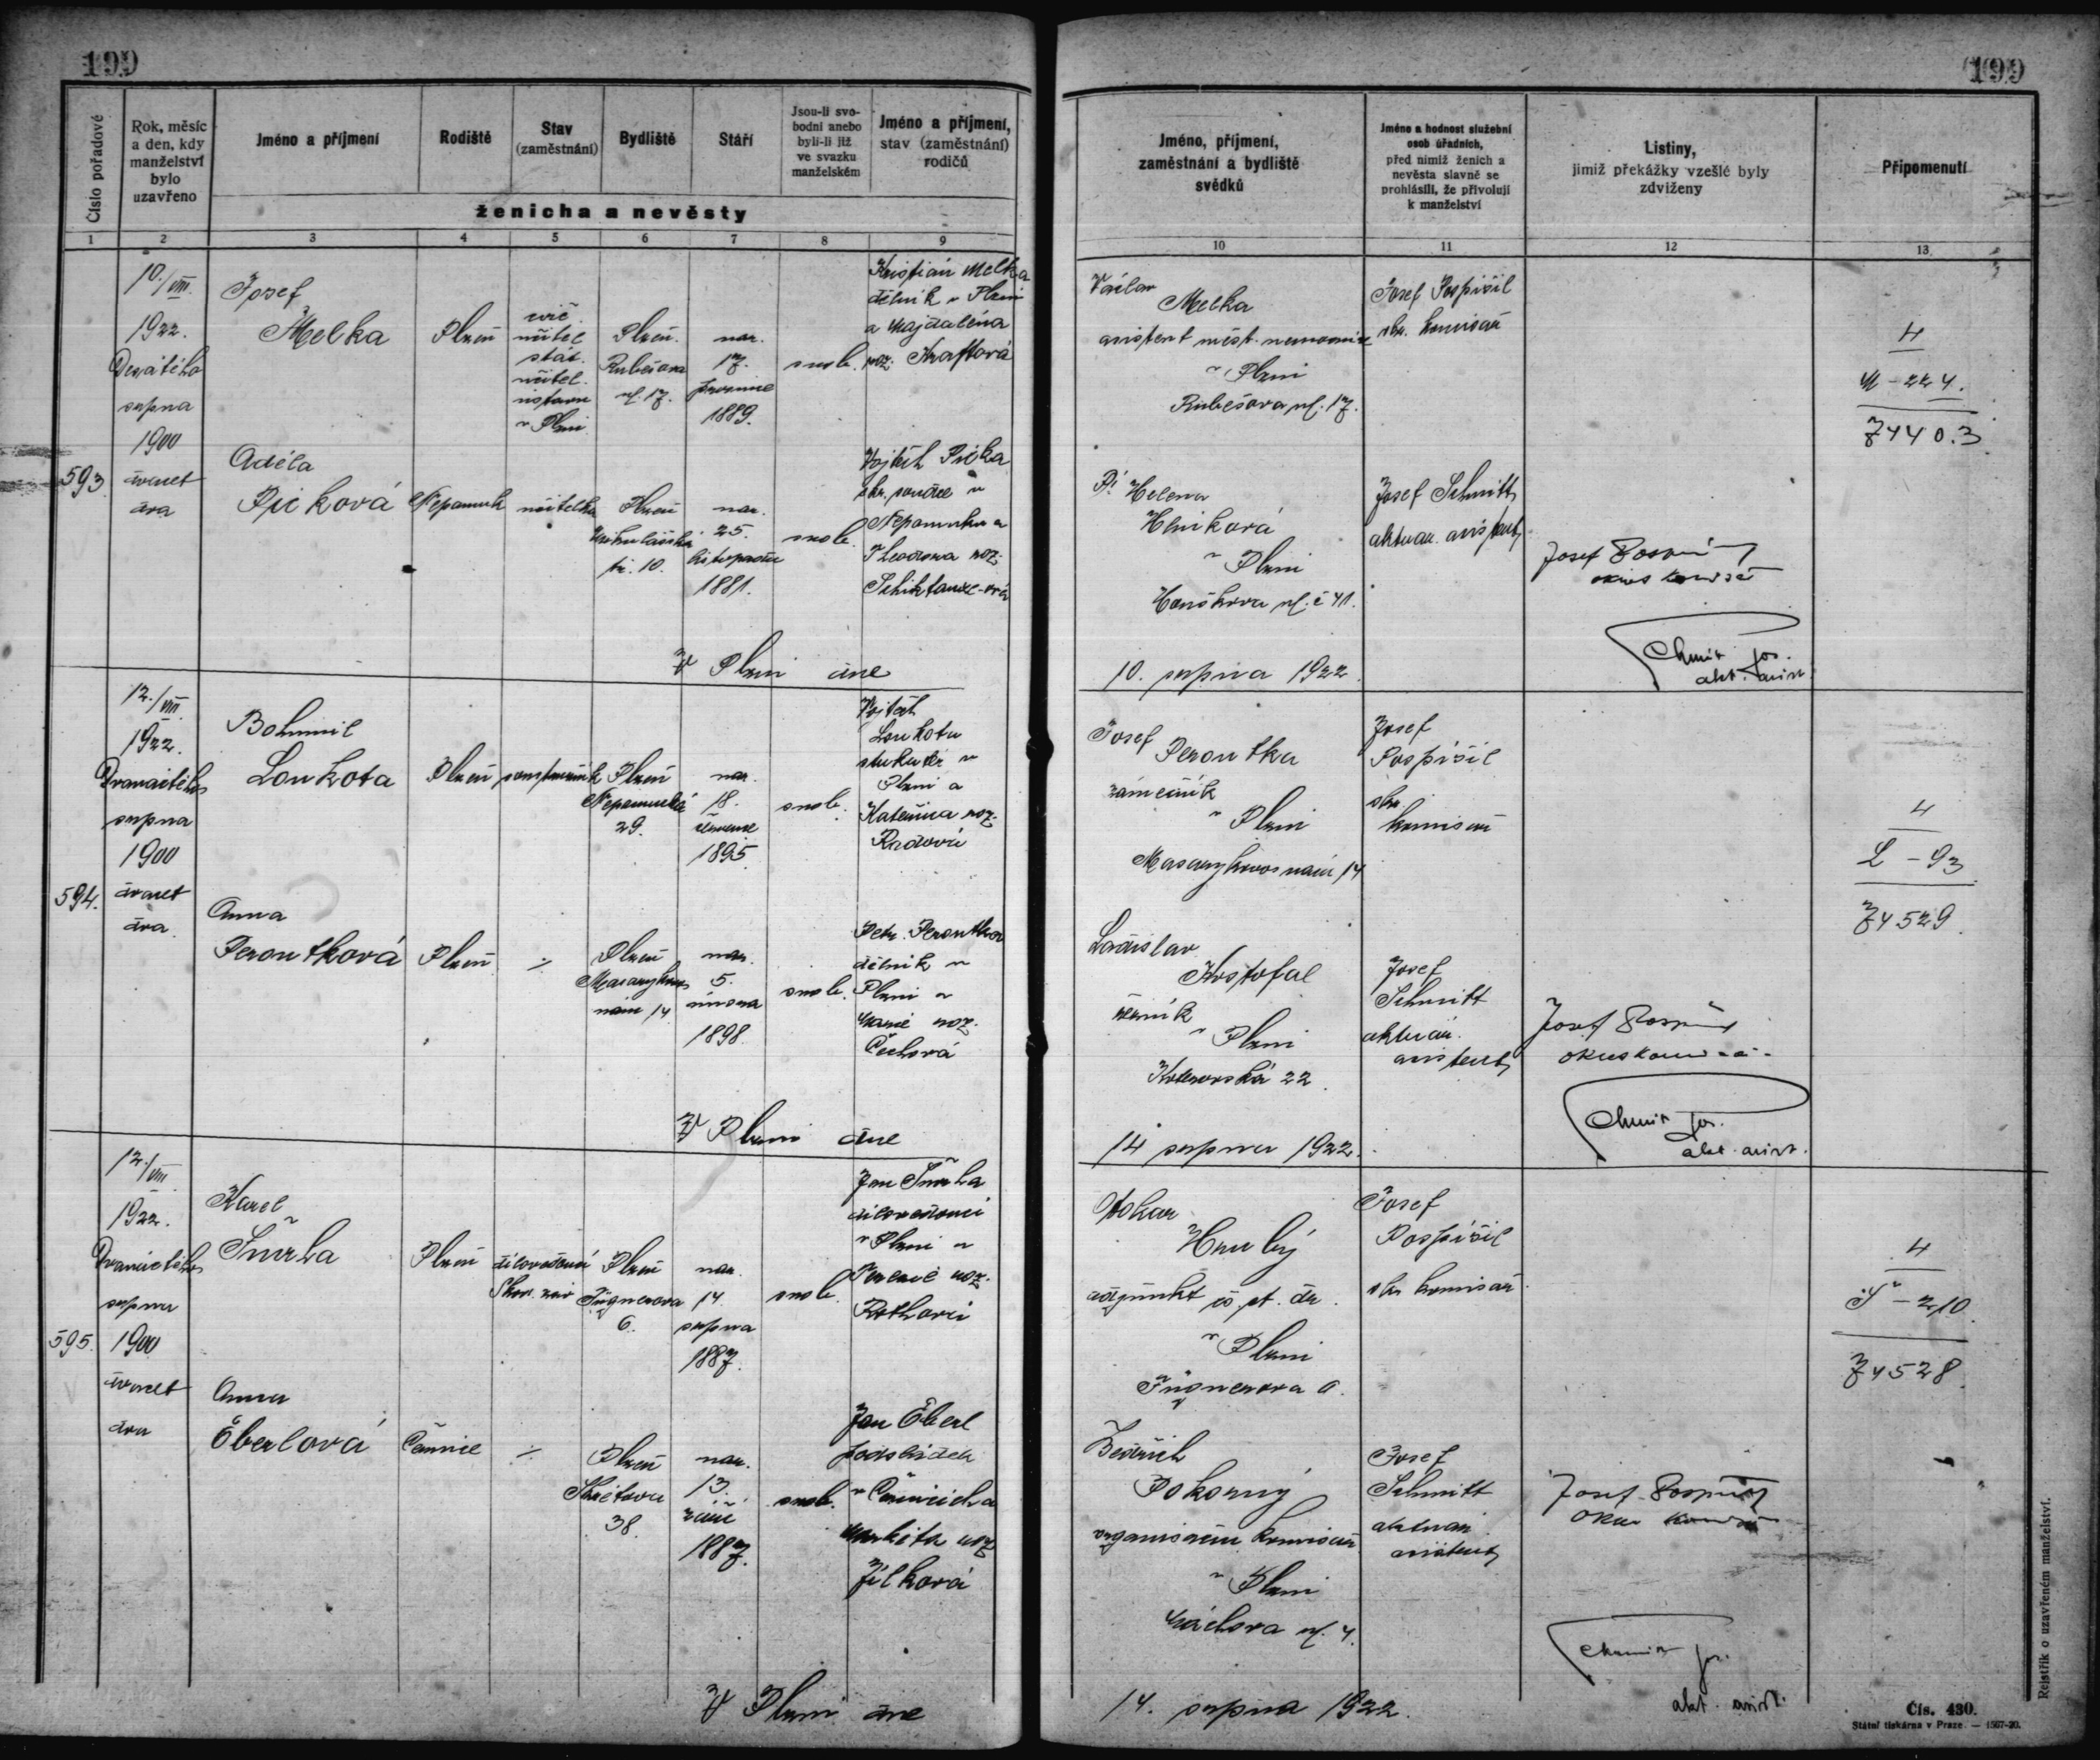 199
199
Číslo pořadové
Rok, měsíc
a den, kdy
manželství
bylo
uzavřeno
Jméno a příjmení
Rodiště
Stav
(zaměstnání)
Bydliště
Stáří
Jsou-li svo-
bodni anebo
byli-li již
ve svazku
manželském
Jméno a příjmení,
stav (zaměstnání)
rodičů
ženicha a nevěsty
1 2 3 4 5 6 7 8 9
Jméno, příjmení,
zaměstnání a bydliště
svědků
Jméno a hodnost služební
osob úřadních,
před nimiž ženich a
nevěsta slavně se
prohlásili, že přivolují
k manželství
Listiny,
jimiž překážky vzešlé byly
zdviženy
Připomenutí
10 11 12 13
593
10./VIII.
1922.
Desátého
srpna
1900
dvacet
dva
Josef
Melka
Plzeň
cvič.
učitel
stát.
učitel.
ústavu
v Plzni
Plzeň.
Rubešova
ul. 17.
nar.
17.
prosince
1889.
svob.
Kristián Melka
dělník v Plzni
a Majdaléna
roz. Kraftová
Adéla
Picková
Nepomuk
učitelka
Plzeň
Mikulášská
tř. 10.
nar.
25.
listopadu
1881.
svob.
Vojtěch Picka
okr. soudce v
Nepomuku a
Theodora roz.
Václav
Melka
asistent měst. nemocnice
v Plzni
Rubešova ul. 17.
Josef Pospíšil
okr. komisař
Helena
v Plzni
Josef Schmitt
aktuár. asistent
Josef Pospíšil
okres komisař
akt. asist.
4
M - 224.
74403
V Plzni dne
10. srpna 1922
594.
12./VIII.
1922.
Dvanáctého
srpna
1900
dvacet
dva
Bohumil
Loukota
Plzeň
soustružník
Plzeň
Nepomucká
29.
nar.
18.
července
1895
svob.
Vojtěch
Loukota
štukatér v
Plzni a
Kateřina roz.
Radová
Anna
Peroutková
Plzeň
÷
Plzeň
Masarykovo
nám 14
nar.
5.
února
1898.
svob.
Petr Peroutka
dělník v
Plzni a
Marie roz.
Čechová
Josef
Peroutka
zámečník
v Plzni
Masarykovo nám 14
Josef
Pospíšil
okr.
komisař
Ladislav
Kristofal
řezník
v Plzni
Koterovská 22
Josef
Schmitt
aktuár.
asistent
Josef Pospíšil
okres komisař
akt. asist.
4
L - 93
74529
V Plzni dne
14 srpna 1922.
595.
12./VIII.
1922.
Dvanáctého
srpna
1900
dvacet
dva
Karel
Šmrha
Plzeň
dílovedoucí
Škod. záv
Plzeň
Fügnerova
6.
nar.
14.
srpna
1887.
svob.
Jan Šmrha
dílovedoucí
v Plzni a
Terezie roz.
Anna
Eberlová
Čeminé
÷
Plzeň
Skrétova
38.
nar.
13.
září
1887.
svob.
Jan Eberl
Markéta roz
Jílková
Otokar
Hrubý
adjunkt čs. st. dr.
v Plzni
Fügnerova 6.
Josef
Pospíšil
okr komisař
Bedřich
Pokorný
organisační komisař
v Plzni
Máchova ul. 4.
Josef
Schmitt
aktuár
asistent
Josef Pospíšil
okres komisař
akt. asist.
4
Š - 210.
74528.
V Plzni dne
14. srpna 1922.
Rejstřík o uzavřeném manželství.
Čís. 430.
Státní tiskárna v Praze. — 1567-20.